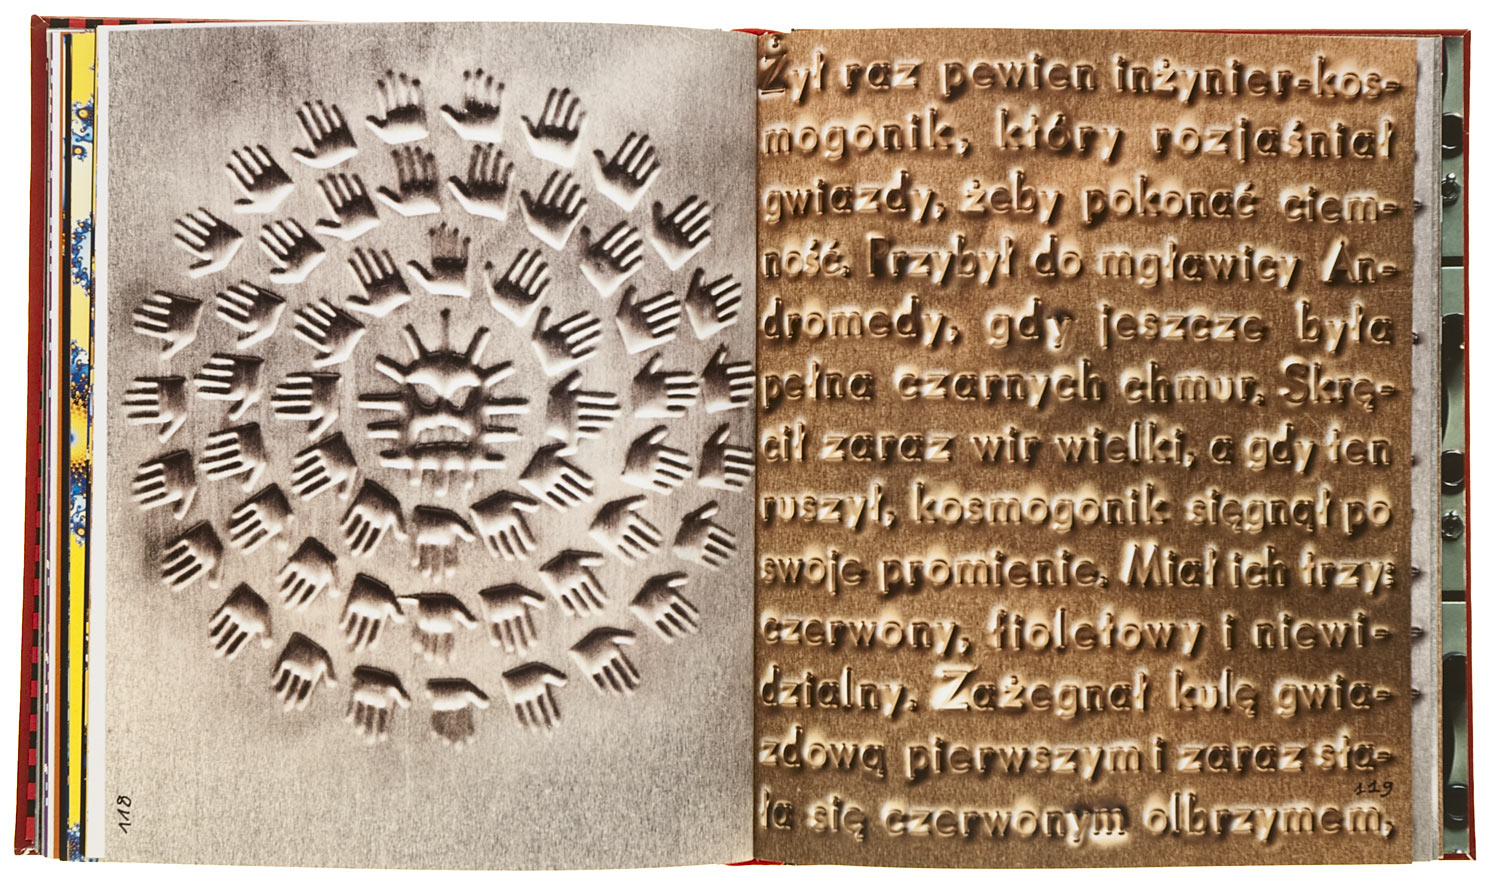 118
Żył raz pewien inżynier-kos-
mogonik, który rozjaśniał
gwiazdy, żeby pokonać ciem-
ność. Przybył do mgławicy An-
dromedy, gdy jeszcze była
pełna czarnych chmur. Skrę-
cił zaraz wir wielki, a gdy ten
ruszył, kosmogonik sięgnął po
swoje promienie. Miał ich trzy:
czerwony, fioletowy i niewi-
dzialny. Zażegnał kulę gwia-
zdową pierwszym i zaraz sta-
ła się czerwonym olbrzymem,
119